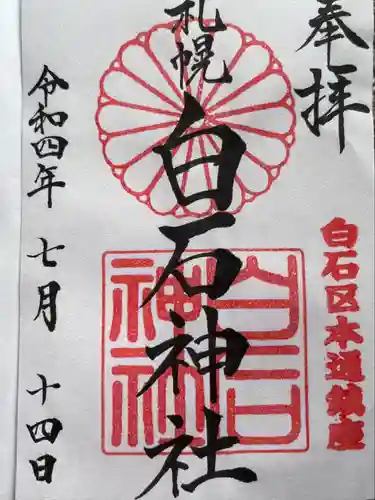 奉拝
白石区本通鎮座
札幌
白石神社
白石神社
令和四年 七月 十四日